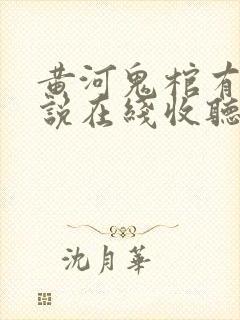 黄河鬼棺有
說在綫收聽
沈月華